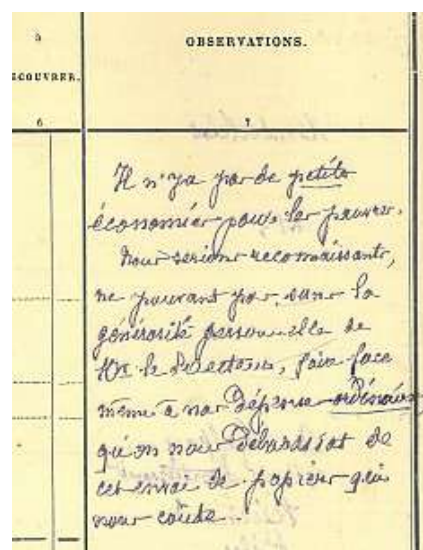 5
OBSERVATIONS.
ECOUVRER.
6
7
Il n'y a pas de petites
économies pour les pauvres.
Nous serions reconnaissants,
ne pouvant pas, sans la
générosité personnelle de
Mr le Directeur, faire face
même à nos dépenses ordinaires
qu'on nous débarassat de
cet envoi de papier qui
nous coûte.